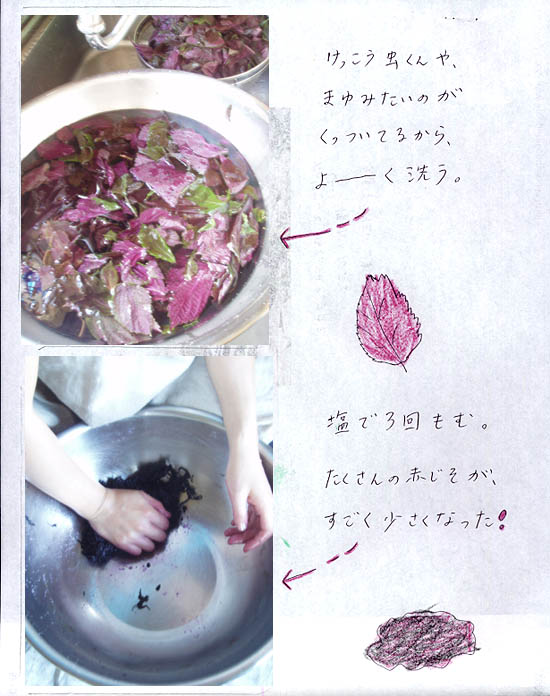 けっこう虫くんや、
まゆみたいのが
くっついてるから、
よーく洗う。
塩で3回もむ。
たくさんの赤じそが、
すごく少さくなった!